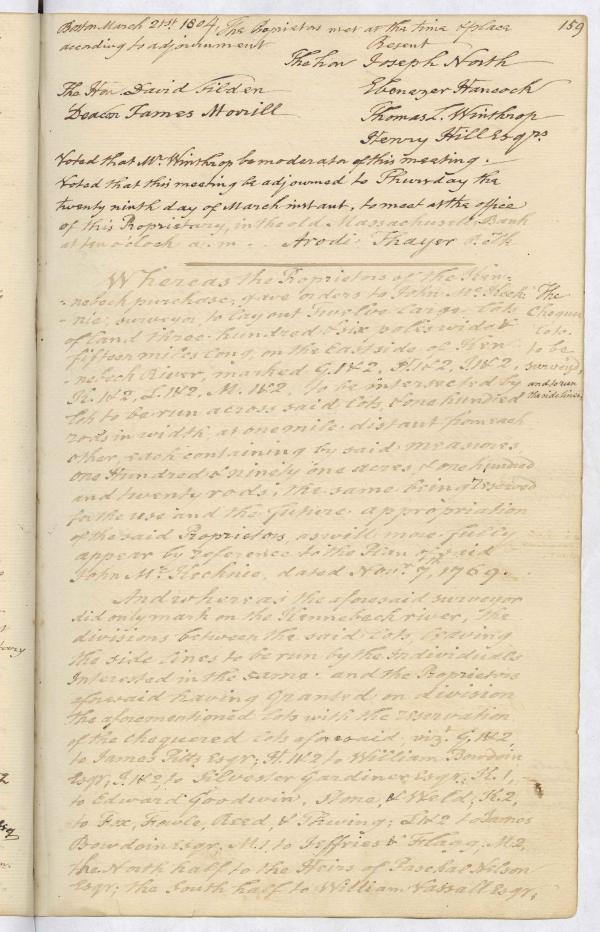 159
Boston March 21st 1804, The Proprietors met at the time & place
according to adjournment Present
The hon Joseph North
The Hon David Tilden Ebenezer Hancock
Deacon James Morrill Thomas L. Winthrop
Henry Hill Esqrs
Voted that Mr Winthrop be moderator of this meeting.
Voted that this meeting be adjourned to Thursday the
twenty ninth day of March instant, to meet at the office
of this Propriety, in the old Massachusetts Bank
at ten o'clock a.m. Arodi Thayer P. Clk
Whereas the Proprietors of the Ken-
-nebeck purchase, gave orders to John Mc Kech-
-nie, surveyor, to lay out Twelve Large Lots
of land three hundred & six poles wide &
fifteen miles Long, on the East side of Ken
-nebeck River, marked G. 1 & 2, H 1 & 2, I 1 & 2,
K. 1 & 2, L. 1 & 2, M. 1 & 2, to be intersected by
Lots to be run across said Lots, & one hundred
rods in width, at one mile distant from each
other, each containing by said measures,
one Hundred & ninety one acres, & one hundred
and twenty rods; the same being reserved
for the use and the future appropriation
of the said Proprietors, as will more fully
appear by reference to the Plan of said
John Mc Kechnie, dated Novr 7th 1769.
The
Chequer
Lots
to be
survey'd,
and to run
the side lines,
And whereas the aforesaid surveyor
did only mark on the Kennebeck river, the
divisions between the said Lots, leaving
the side lines to be run by the Individuals
Interested in the same. and the Proprietors
aforesaid having Granted on division
the aforementioned Lots with the reservation
of the chequered Lots aforesaid, vizt G. 1 & 2
to James Pitts Esqr; H. 1 & 2 to William Bowdoin
Esqr, I. 1 & 2, to Silvester Gardiner Esqr; K. 1,
to Edward Goodwin, Stone, & Weld; K. 2,
to Fox, Fowle, Reed, & Thwing; L 1 & 2 to James
Bowdoin Esqr, M. 1, to Jeffries & Flagg, M 2,
the North half to the Heirs of Paschal Nelson
Esqr; the South half to William Vassall Esqr,